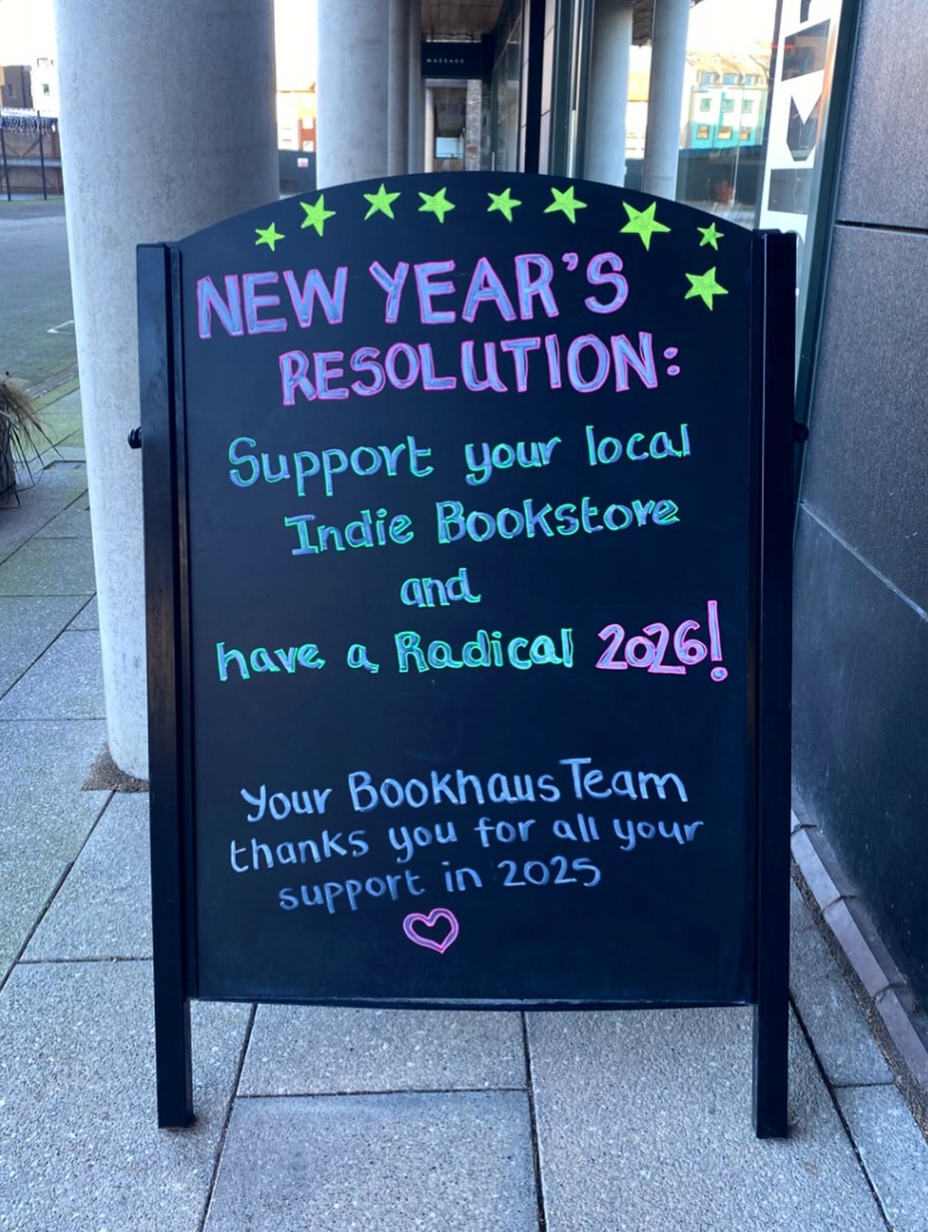 MASSAGE
NEW YEAR'S
RESOLUTION:
Support your local
Indie Bookstore
and
have a Radical 2026!
Your Bookhaus Team
thanks you for all your
support in 2025